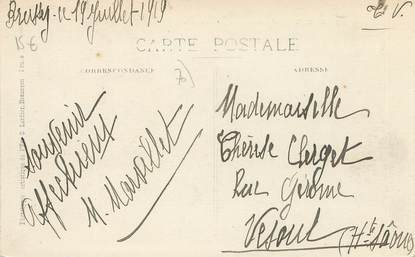 le 19 Juillet 1919
F. V.
15 €
CARTE POSTALE
CORRESPONDANCE
ADRESSE
70
Souvenir
affectueux
M. Marsillet
Mademoiselle
Thérèse Clerget
Rue Gérôme
Vesoul
(Hte Saône)